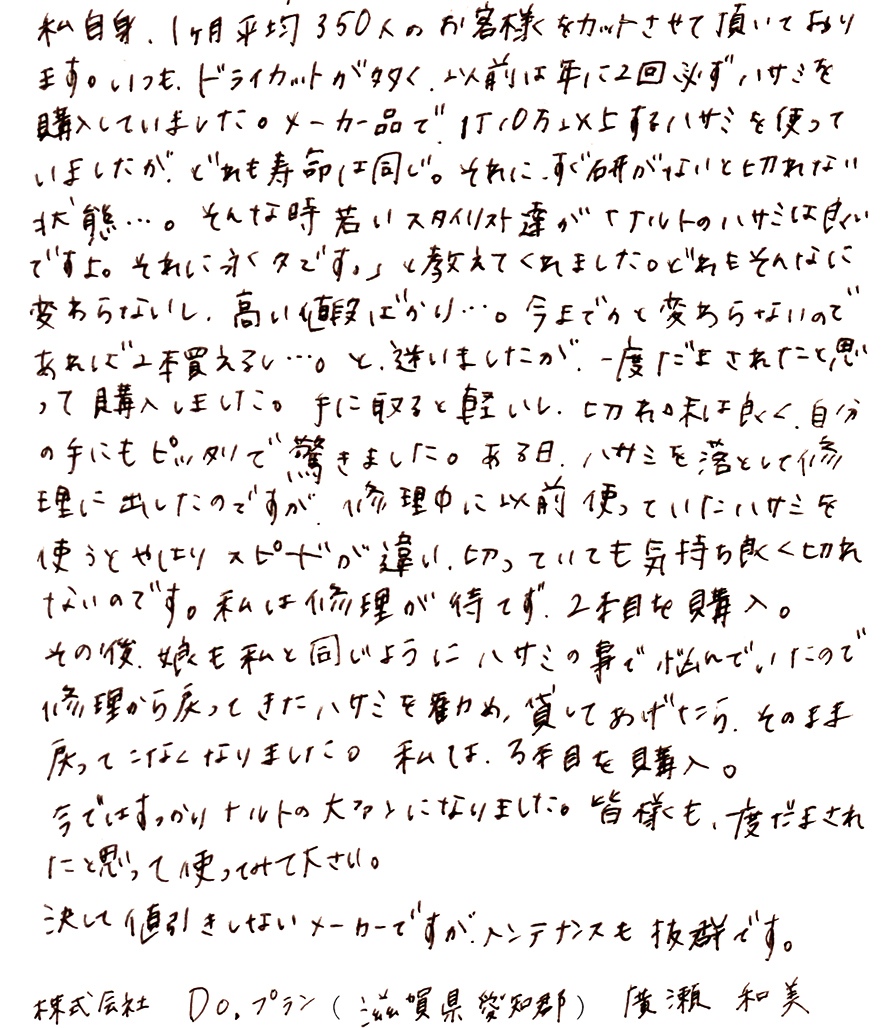 私自身、1ヶ月平均350人のお客様をカットさせて頂いており
ます。いつも、ドライカットが多く、以前は年に2回必ずハサミを
購入していました。メーカー品で1丁10万以上するハサミを使って
いましたが、どれも寿命は同じ。それに、すぐ研がないと切れない
状態…。そんな時若いスタイリスト達が「ナルトのハサミは良い
ですよ。それに永久です。」と教えてくれました。どれもそんなに
変わらないし、高い値段ばかり…。今までのと変わらないので
あれば2本買えるし…。と、迷いましたが、一度だまされたと思
って購入しました。手に取ると軽いし、切れ味は良く、自分
の手にもピッタリで驚きました。ある日、ハサミを落として修
理に出したのですが、修理中に以前使っていたハサミを
使うとやはりスピードが違い、切っていても気持ち良く切れ
ないのです。私は修理が待てず、2本目を購入。
その後、娘も私と同じようにハサミの事で悩んでいたので
修理から戻ってきたハサミを勧め、貸してあげたら、そのまま
戻ってこなくなりました。私は、3本目を購入。
今ではすっかりナルトの大ファンになりました。皆様も、一度だまされ
たと思って使ってみて下さい。
決して値引きしないメーカーですが、メンテナンスも抜群です。
株式会社 Do,プラン(滋賀県愛知郡) 廣瀬 和美